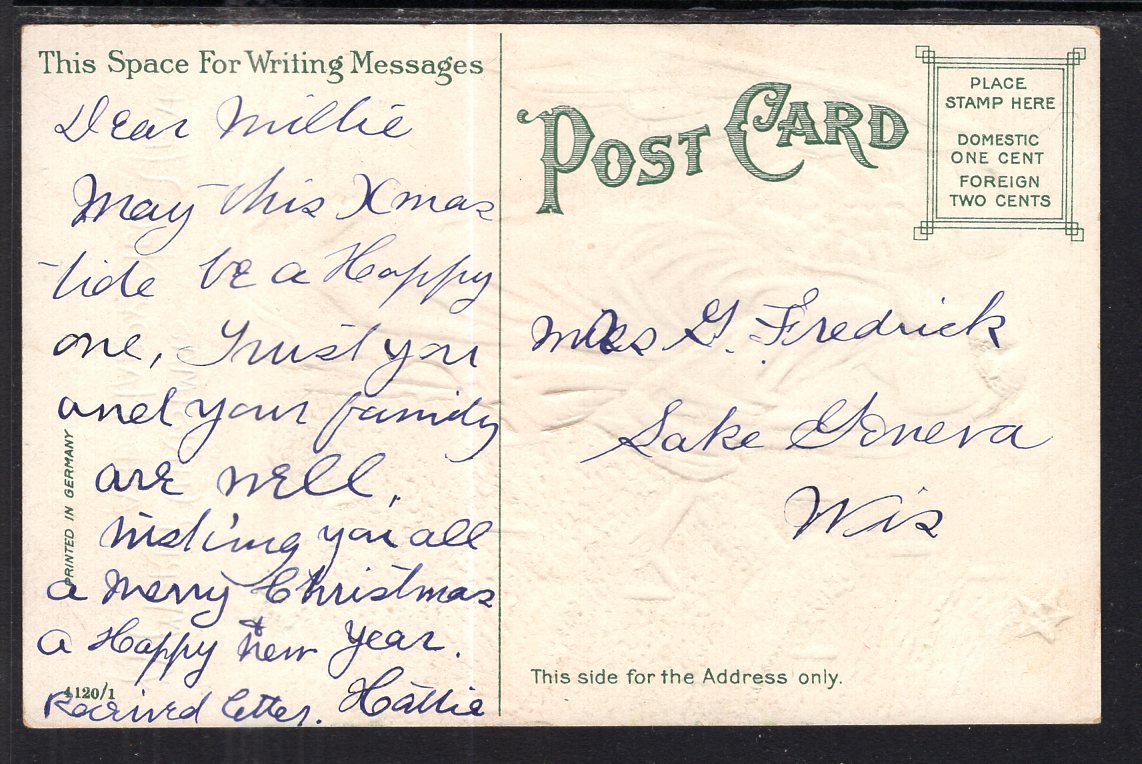 This Space For Writing Messages
Dear Millie
May this Xmas
tide be a Happy
one, Trust you
and your family
are well,
Wishing you all
a Merry Christmas
+
a Happy New Year.
Received letter. Hattie
PRINTED IN GERMANY
4120/1
POST CARD
PLACE
STAMP HERE
DOMESTIC
ONE CENT
FOREIGN
TWO CENTS
Mrs G. Fredrick
Lake Geneva
Wis
This side for the Address only.